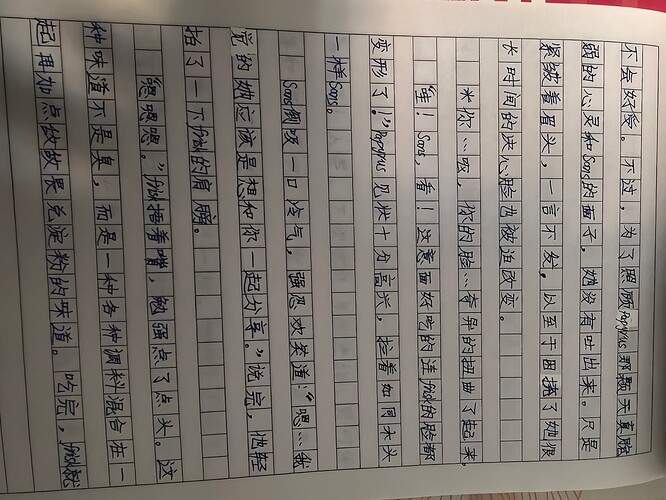 不会好受。不过，为了照顾Papyrus那颗天真脆
弱的心灵和Sans的面子，她没有吐出来。只是
紧皱着眉头，一言不发，以至于因掩了她很
长时间的决心脸也被迫改变。
*你…呃，你的脸…奇异的扭曲了起来。
“哇！Sans，看！这意面好吃的连frisk的脸都
变形了！”Papyrus见状十分高兴，拉着如同木头
一样Sans。
Sans倒吸一口冷气，强忍欢笑道：“嗯…我
觉的她应该是想和你一起分享。”说完，他轻
拍了一下frisk的肩膀。
“嗯嗯嗯。”frisk捂着嘴，勉强点了点头。这
种味道不是臭，而是一种各种调料混合在一
起再加点放放畏兑淀粉的味道。吃完，frisk就